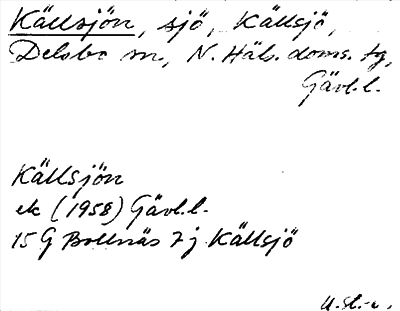 Källsjön, sjö, Källsjö,
Delsbo sn., N. Häls. doms. tg,
Gävl.l.
Källsjön
ek (1958) Gävl.l.
15 G Bollnäs 7 j Källsjö
U.St.-u.